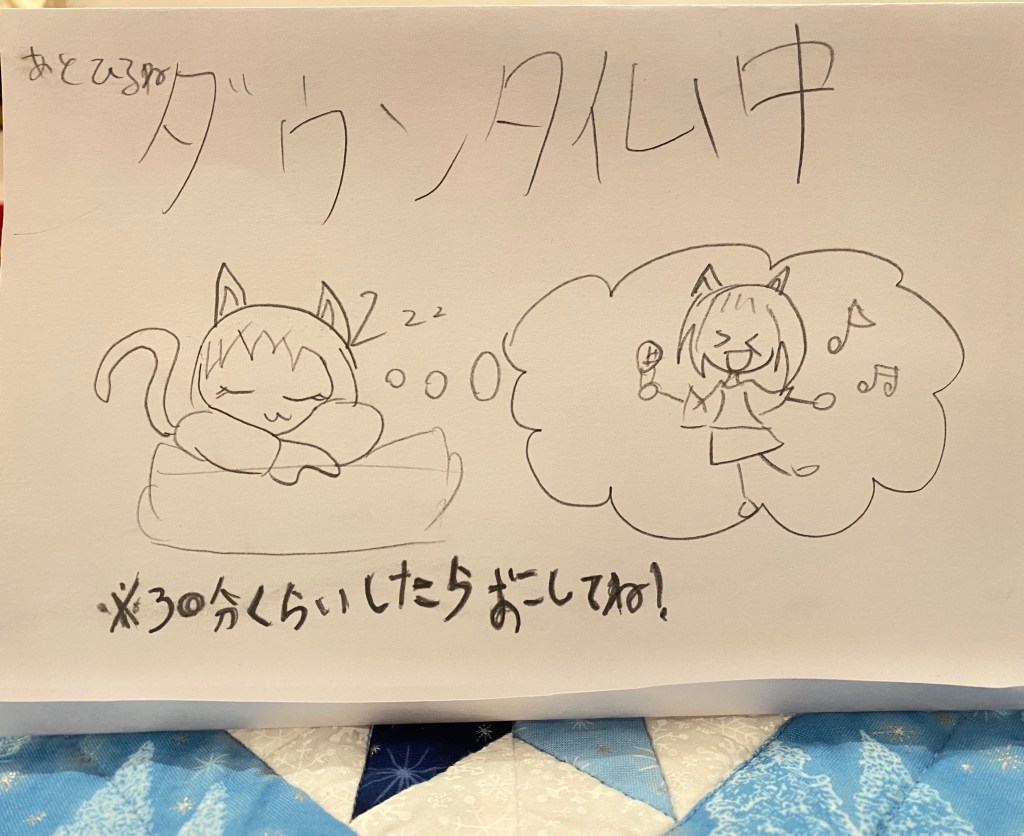 あとひるね
ダウンタイム中
Zzz
※30分くらいしたらおこしてね!